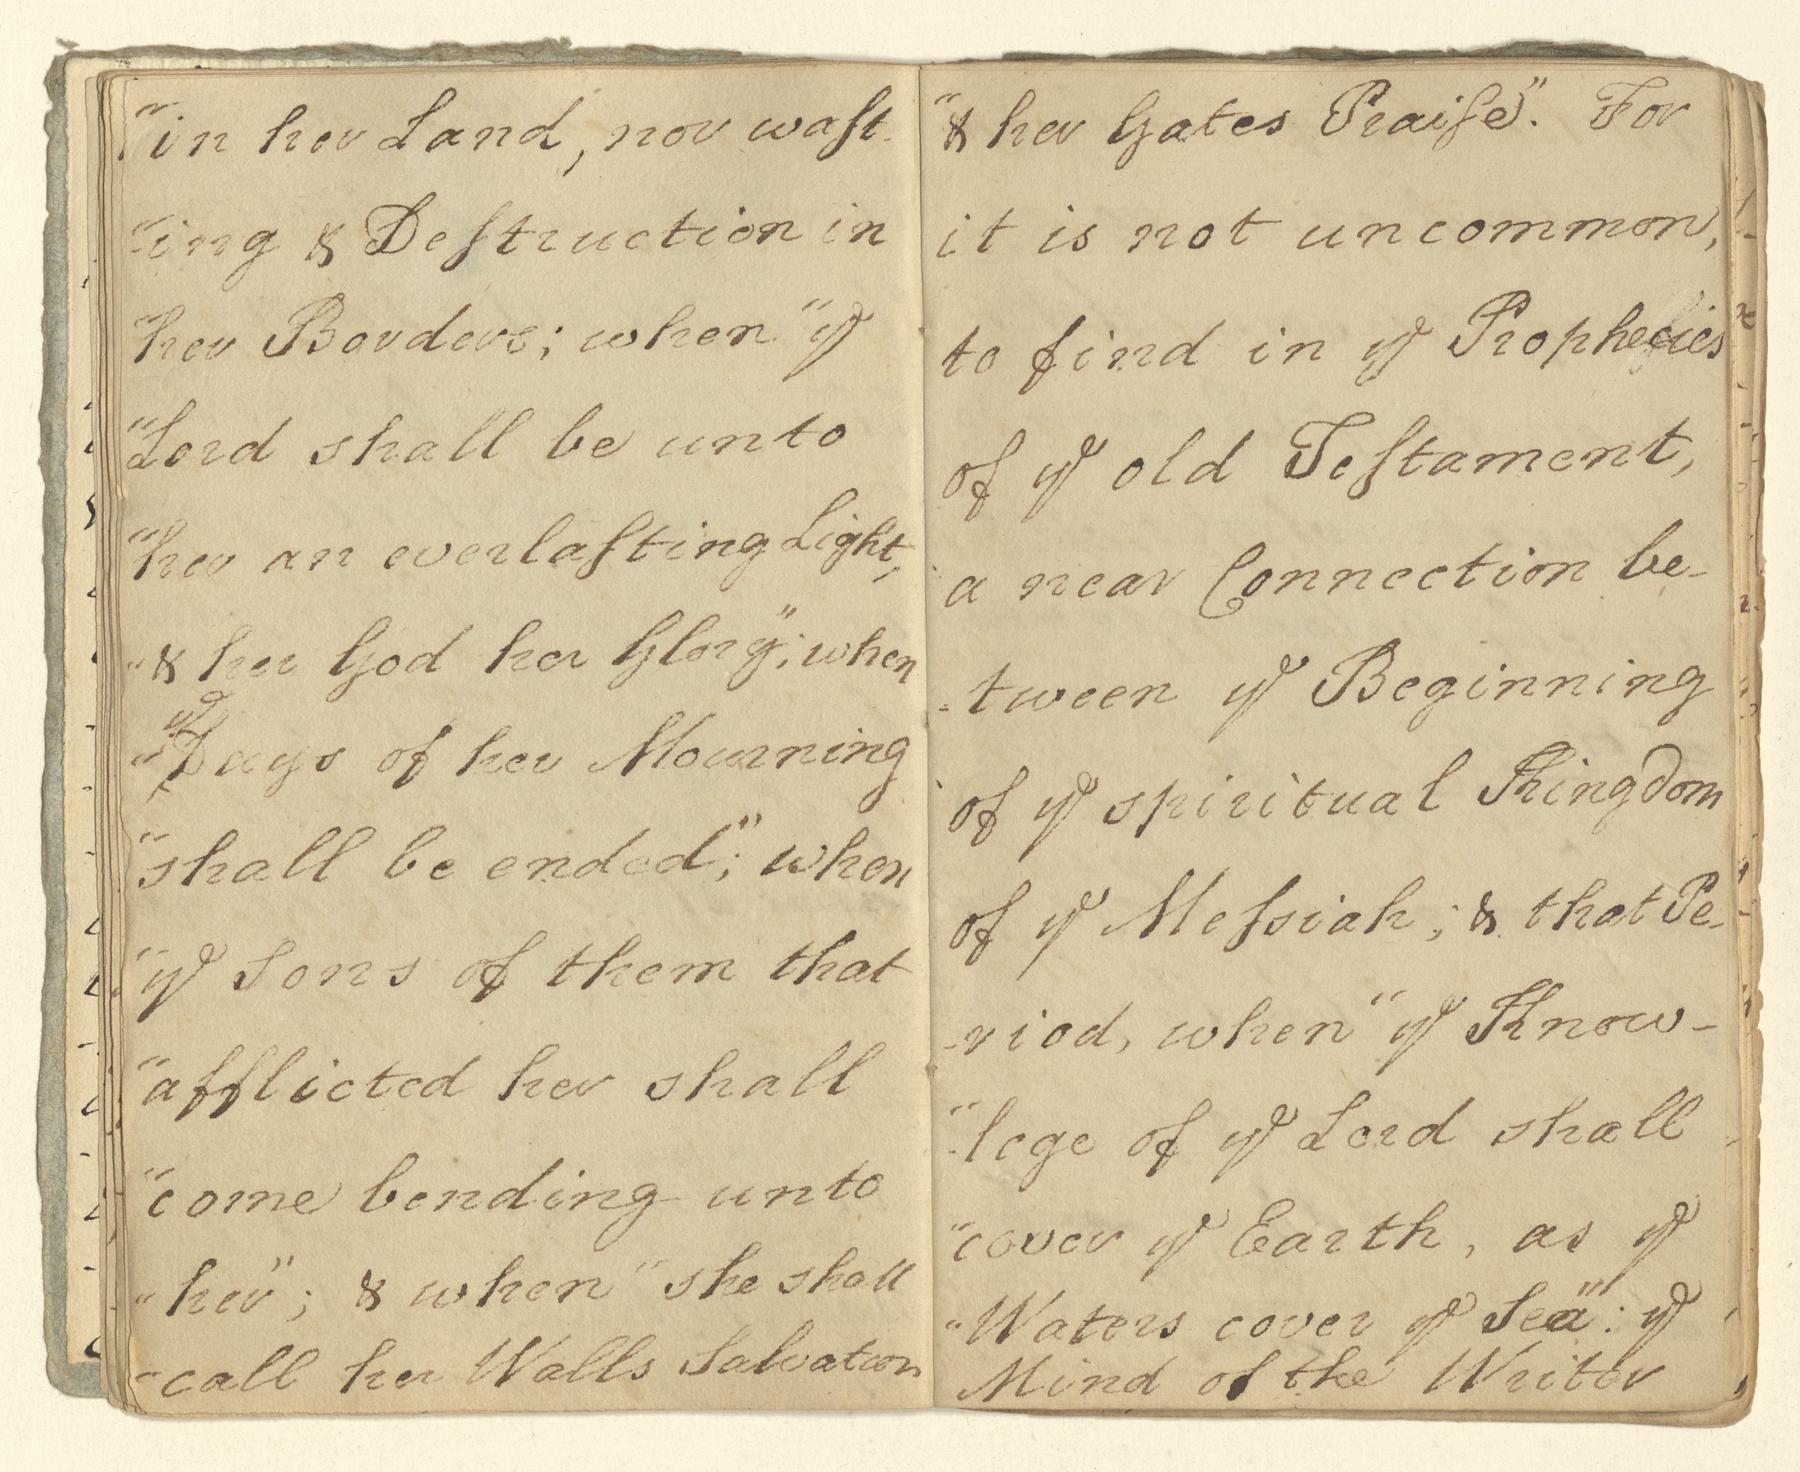 "in her Land, nor waſt-
"ing & Deſtruction in
"her Borders; when "yͤ
"Lord shall be unto
"her an everlaſting Light,
"& her God her Glory"; when
"yͤ Days of her Mourning
"shall be ended"; when
"yͤ Sons of them that
"afflicted her shall
"come bending unto
"her"; & when "she shall
"call her Walls Salvation
"& her Gates Praiſe". For
it is not uncommon,
to find in yͤ Prophecies
of yͤ old Teſtament,
a near Connection be-
-tween yͤ Beginning
of yͤ spiritual Kingdom
of yͤ Meſsiah; & that Pe-
-riod, when "yͤ Know-
"lege of yͤ Lord shall
"cover yͤ Earth, as yͤ
"Waters cover yͤ Sea": yͤ
Mind of the Writer